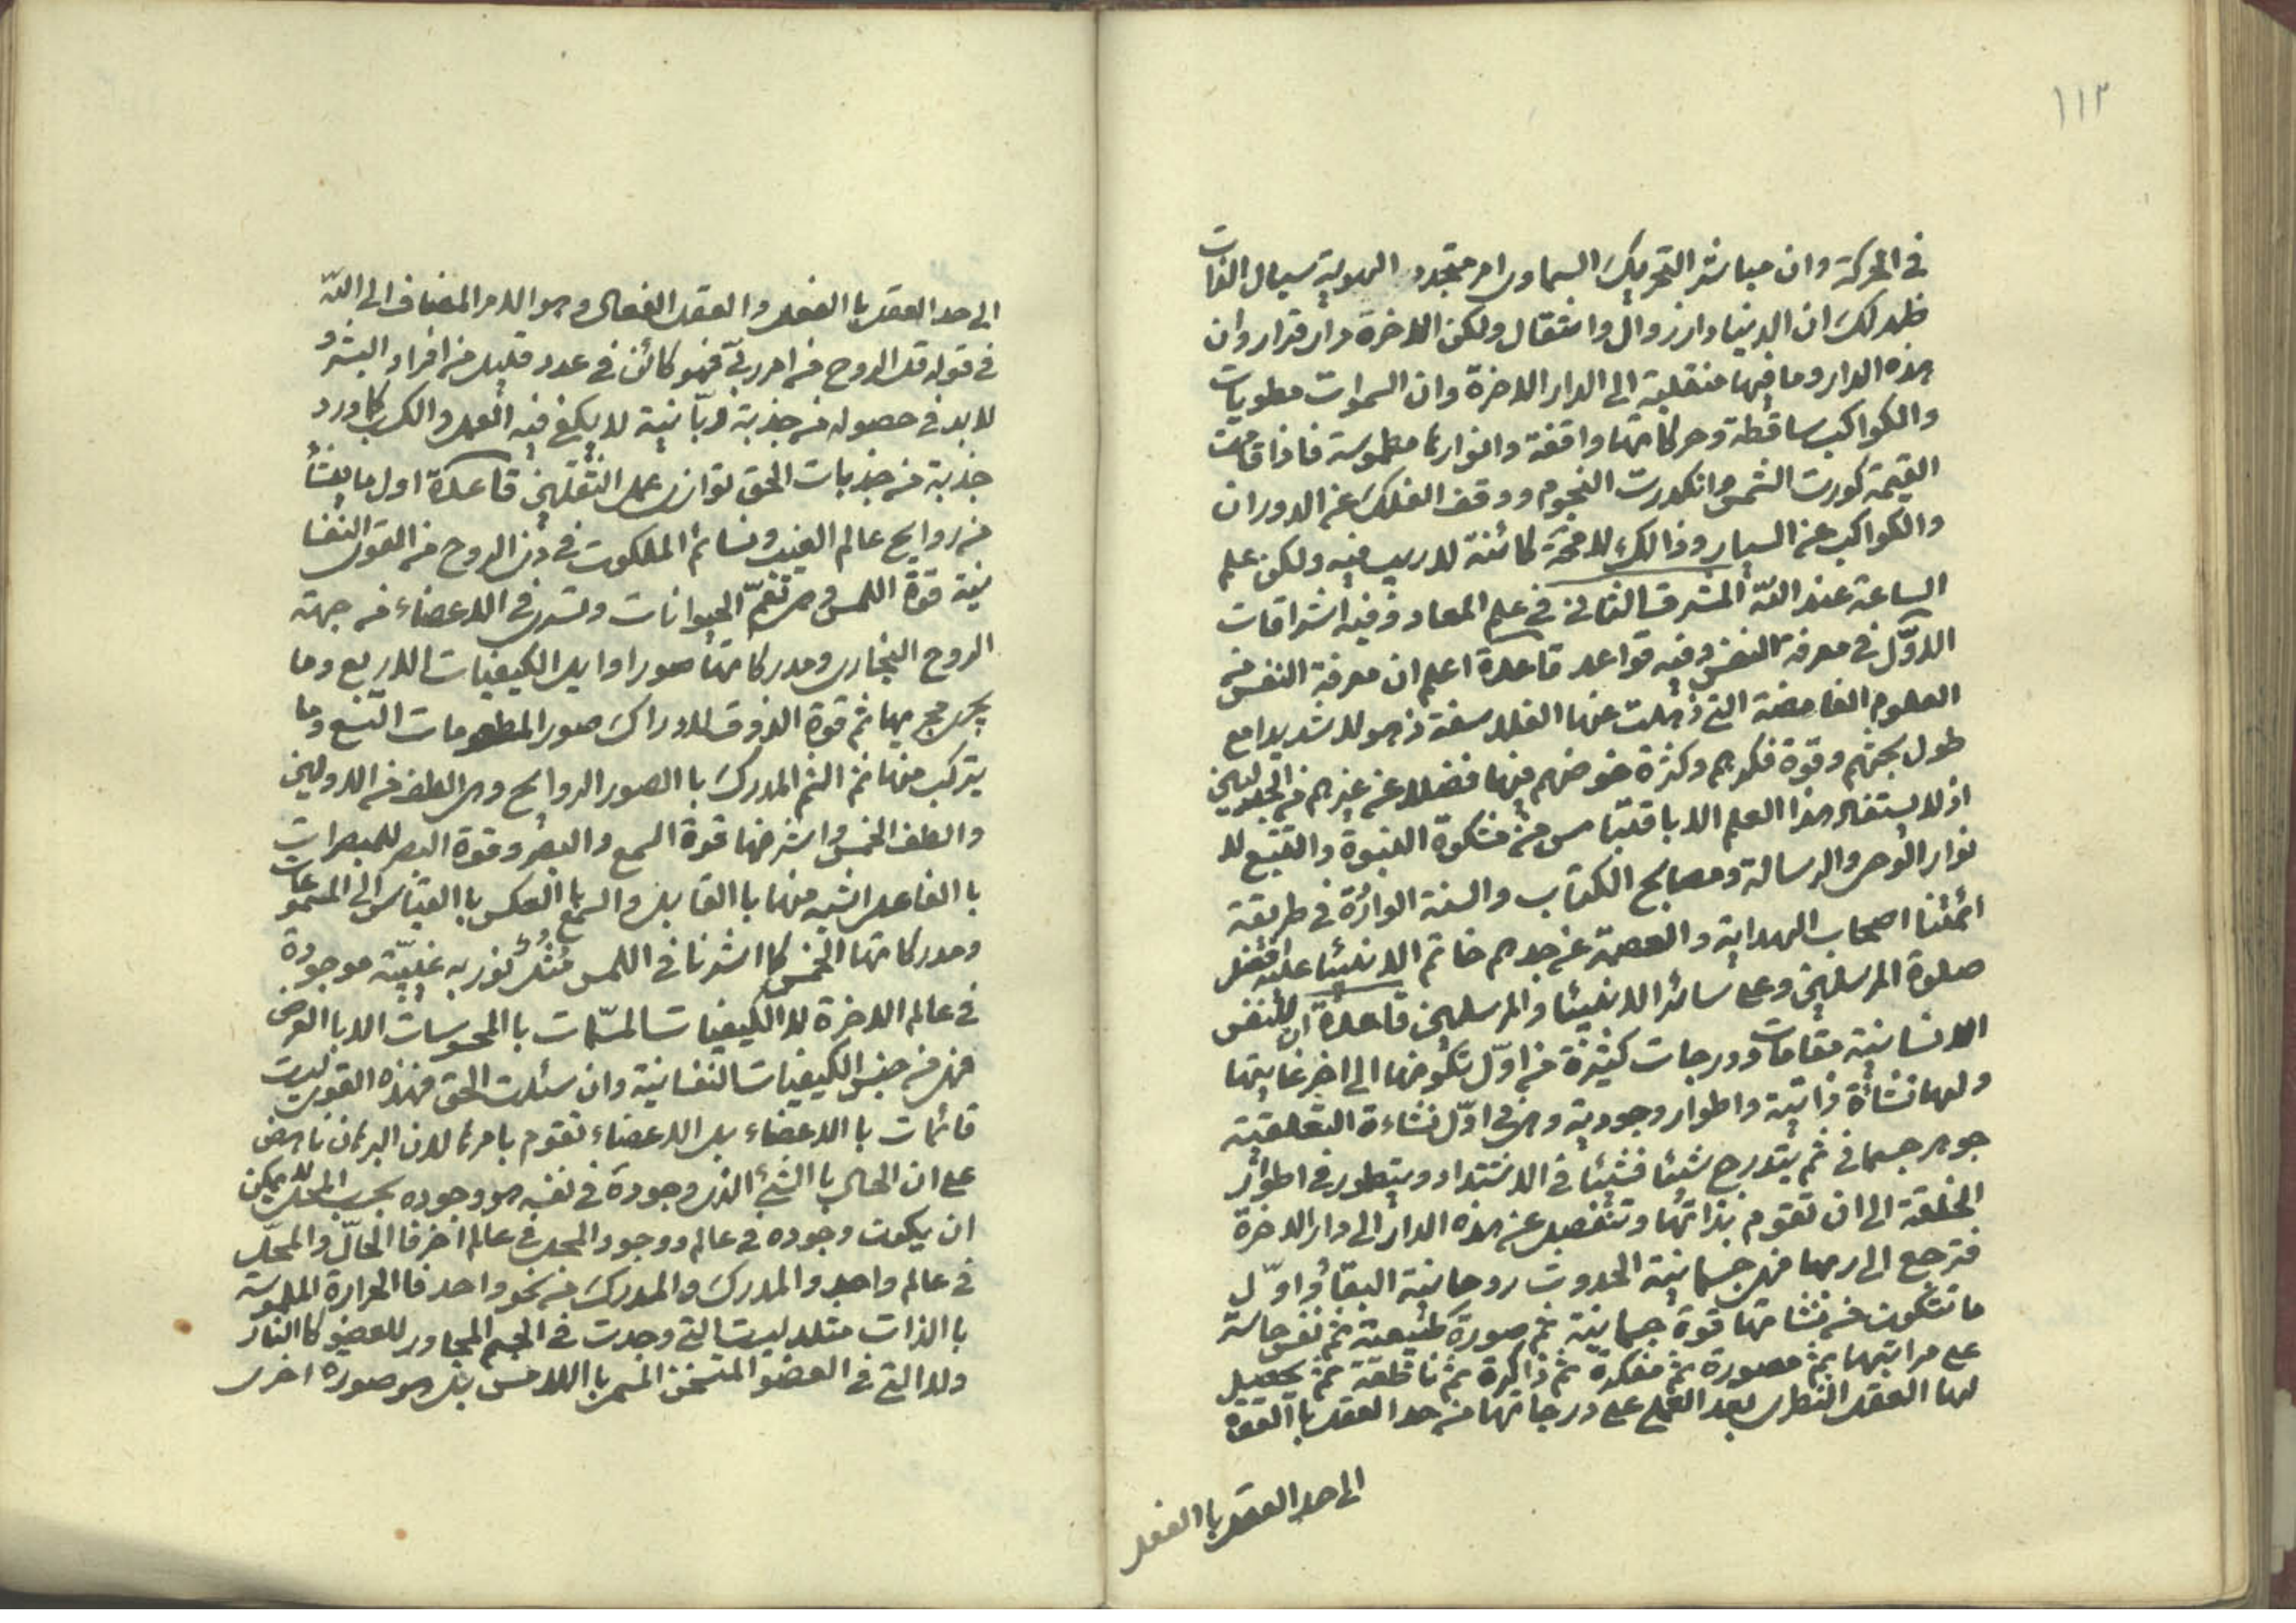 ١١٢
في الحركة وان مباشر التحريك السماوي امر متجدد الهوية سيال الذات
ظهر لك ان الدنيا دار زوال وانتقال ولكن الاخرة دار قرار وان
هذه الدار وما فيها منقلبة الى الدار الاخرة وان السموات مطويات
والكواكب ساقطة وحركاتها واقفة وانوارها مطموسة فاذا قامت
القيمة كورت الشمس وانكدرت النجوم ووقف الفلك عن الدوران
والكواكب عن السيار وذالك لا محة كائنة لا ريب فيه ولكن علم
الساعة عند الله المشرق الثاني في علم المعاد وفيه اشراقات
الاوّل في معرفة النفس وفيه قواعد قاعدة اعلم ان معرفة النفس من
العلوم الغامضة التي ذهلت عنها الفلاسفة ذهولا شديدا مع
طول بحثهم وقوة فكرهم وكثرة خوضهم فيها فضلا عن غيرهم من الجدليين
اذ لا يستفاد هذا العلم الا باقتباس من مشكوة النبوة والتتبع لا
نوار الوحي والرسالة ومصابح الكتاب والسنة الواردة في طريقة
ائمتنا اصحاب الهداية والعصمة عن جدهم خاتم الانبيئا عليه افضل
صلوة المرسلين وعلى سائر الانبيئا والمرسلين قاعدة ان للنفس
الانسانية مقامات ودرجات كثيرة من اوّل تكونها الى اخر غايتها
ولها نشاءة ذاتية واطوار وجودية وهي في اوّل نشاءة التعلقية
جوهر جسماني ثم يتدرج شيئا فشيئا في الاشتداد ويتطور في اطوار
الخلقة الى ان تقوم بذاتها وتنفصل عن هذه الدار الى دار الاخرة
فترجع الى ربها فهي جسمانية الحدوث روحانية البقاء واوّل
ما تتكون من نشاتها قوة جسمانية ثم صورة طبيعية ثم نفس حاسة
على مراتبها ثم مصورة ثم مفكرة ثم ذاكرة ثم ناطقة ثم يحصل
لها العقل النظري بعد العملي على درجاتها من حد العقل باالقوة
الى حد العقل باالفعل
الى حد العقل باالفعل والعقل الفعال وهو الامر المضاف الى اللّه
في قوله قل الروح من امر ربّي فهو كائن في عدد قليل من افراد البشر و
لا بد في حصوله من جذبة ربّانية لا يكفي فيه العمل والكسب كما ورد
جذبة من جذبات الحق توازي عمل الثقلين قاعدة اول ما ينشأ
من روايح عالم الغيب ونسائم الملكوت في ذي الروح من القوى النفسا
نية قوة اللمس وهي تعمّ الحيوانات وتسري في الاعضاء من جهة
الروح البخاري ومدركاتها صور اوايل الكيفيات الاربع وما
يجري مجريها ثم قوة الذوق لادراك صور المطعومات التسع وما
يتركب منها ثم الشم المدرك باالصور الروايح وهي الطف من الاوليين
والطف الخمس واشرفها قوة السمع والبصر وقوة البصر للمبصرات
باالفاعل اشبه منها باالقابل والسمع باالعكس باالقياس الى المسموعات
ومدركاتها الخمس كما اشرنا في اللمس مُثُل نورية غيبيّة موجودة
في عالم الاخرة لا الكيفيات المسمّات باالمحسوسات الا باالعرض
فهي من جنس الكيفيات النفسانية وان سئلت الحق فهذه القوى ليست
قائمات باالاعضاء بل الاعضاء تقوم بامرها لان البرهان ناهض
على ان الحال باالشئ الذي وجودة في نفسه هو وجوده بحسب المحل لا يمكن
ان يكون وجوده في عالم ووجود المحل في عالم اخر فا الحالّ والمحلّ
في عالم واحد والمدرك والمدرك من نحو واحد فا الحرارة الملموسة
باالذات مثلا ليست التي وجدت في الجسم المجاور للعضو كاالنار
ولا التي في العضو المتسخن المسمى باللامس بل هو صورة اخرى